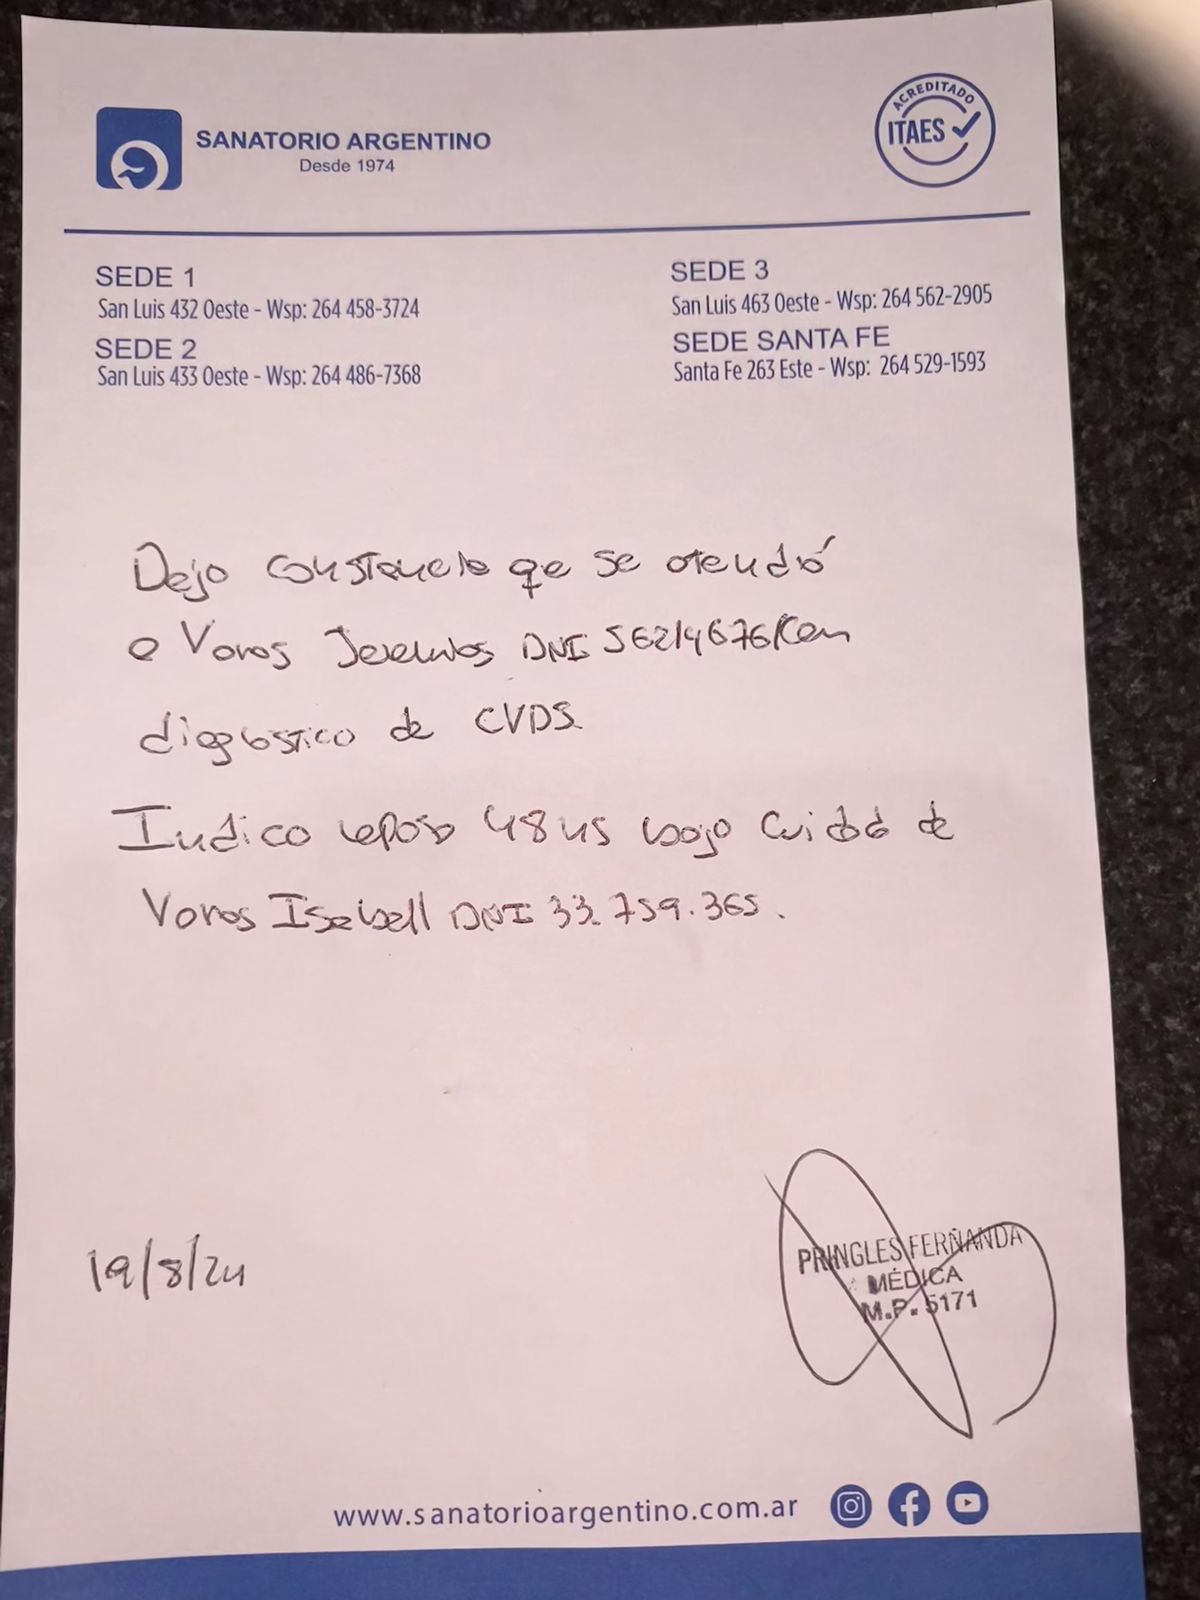 SANATORIO ARGENTINO
Desde 1974
ACREDITADO
ITAES
SEDE 1
San Luis 432 Oeste - Wsp: 264 458-3724
SEDE 2
San Luis 433 Oeste - Wsp: 264 486-7368
SEDE 3
San Luis 463 Oeste - Wsp: 264 562-2905
SEDE SANTA FE
Santa Fe 263 Este - Wsp: 264 529-1593
Dejo constancia que se atendió
a Voros DNI con
diagnóstico de CVDS
Indico reposo 48 hs bajo cuidado de
Voros Isabell DNI 33.759.365.
19/8/24
PRINGLES FERNANDA
MÉDICA
M.P. 5171
www.sanatorioargentino.com.ar